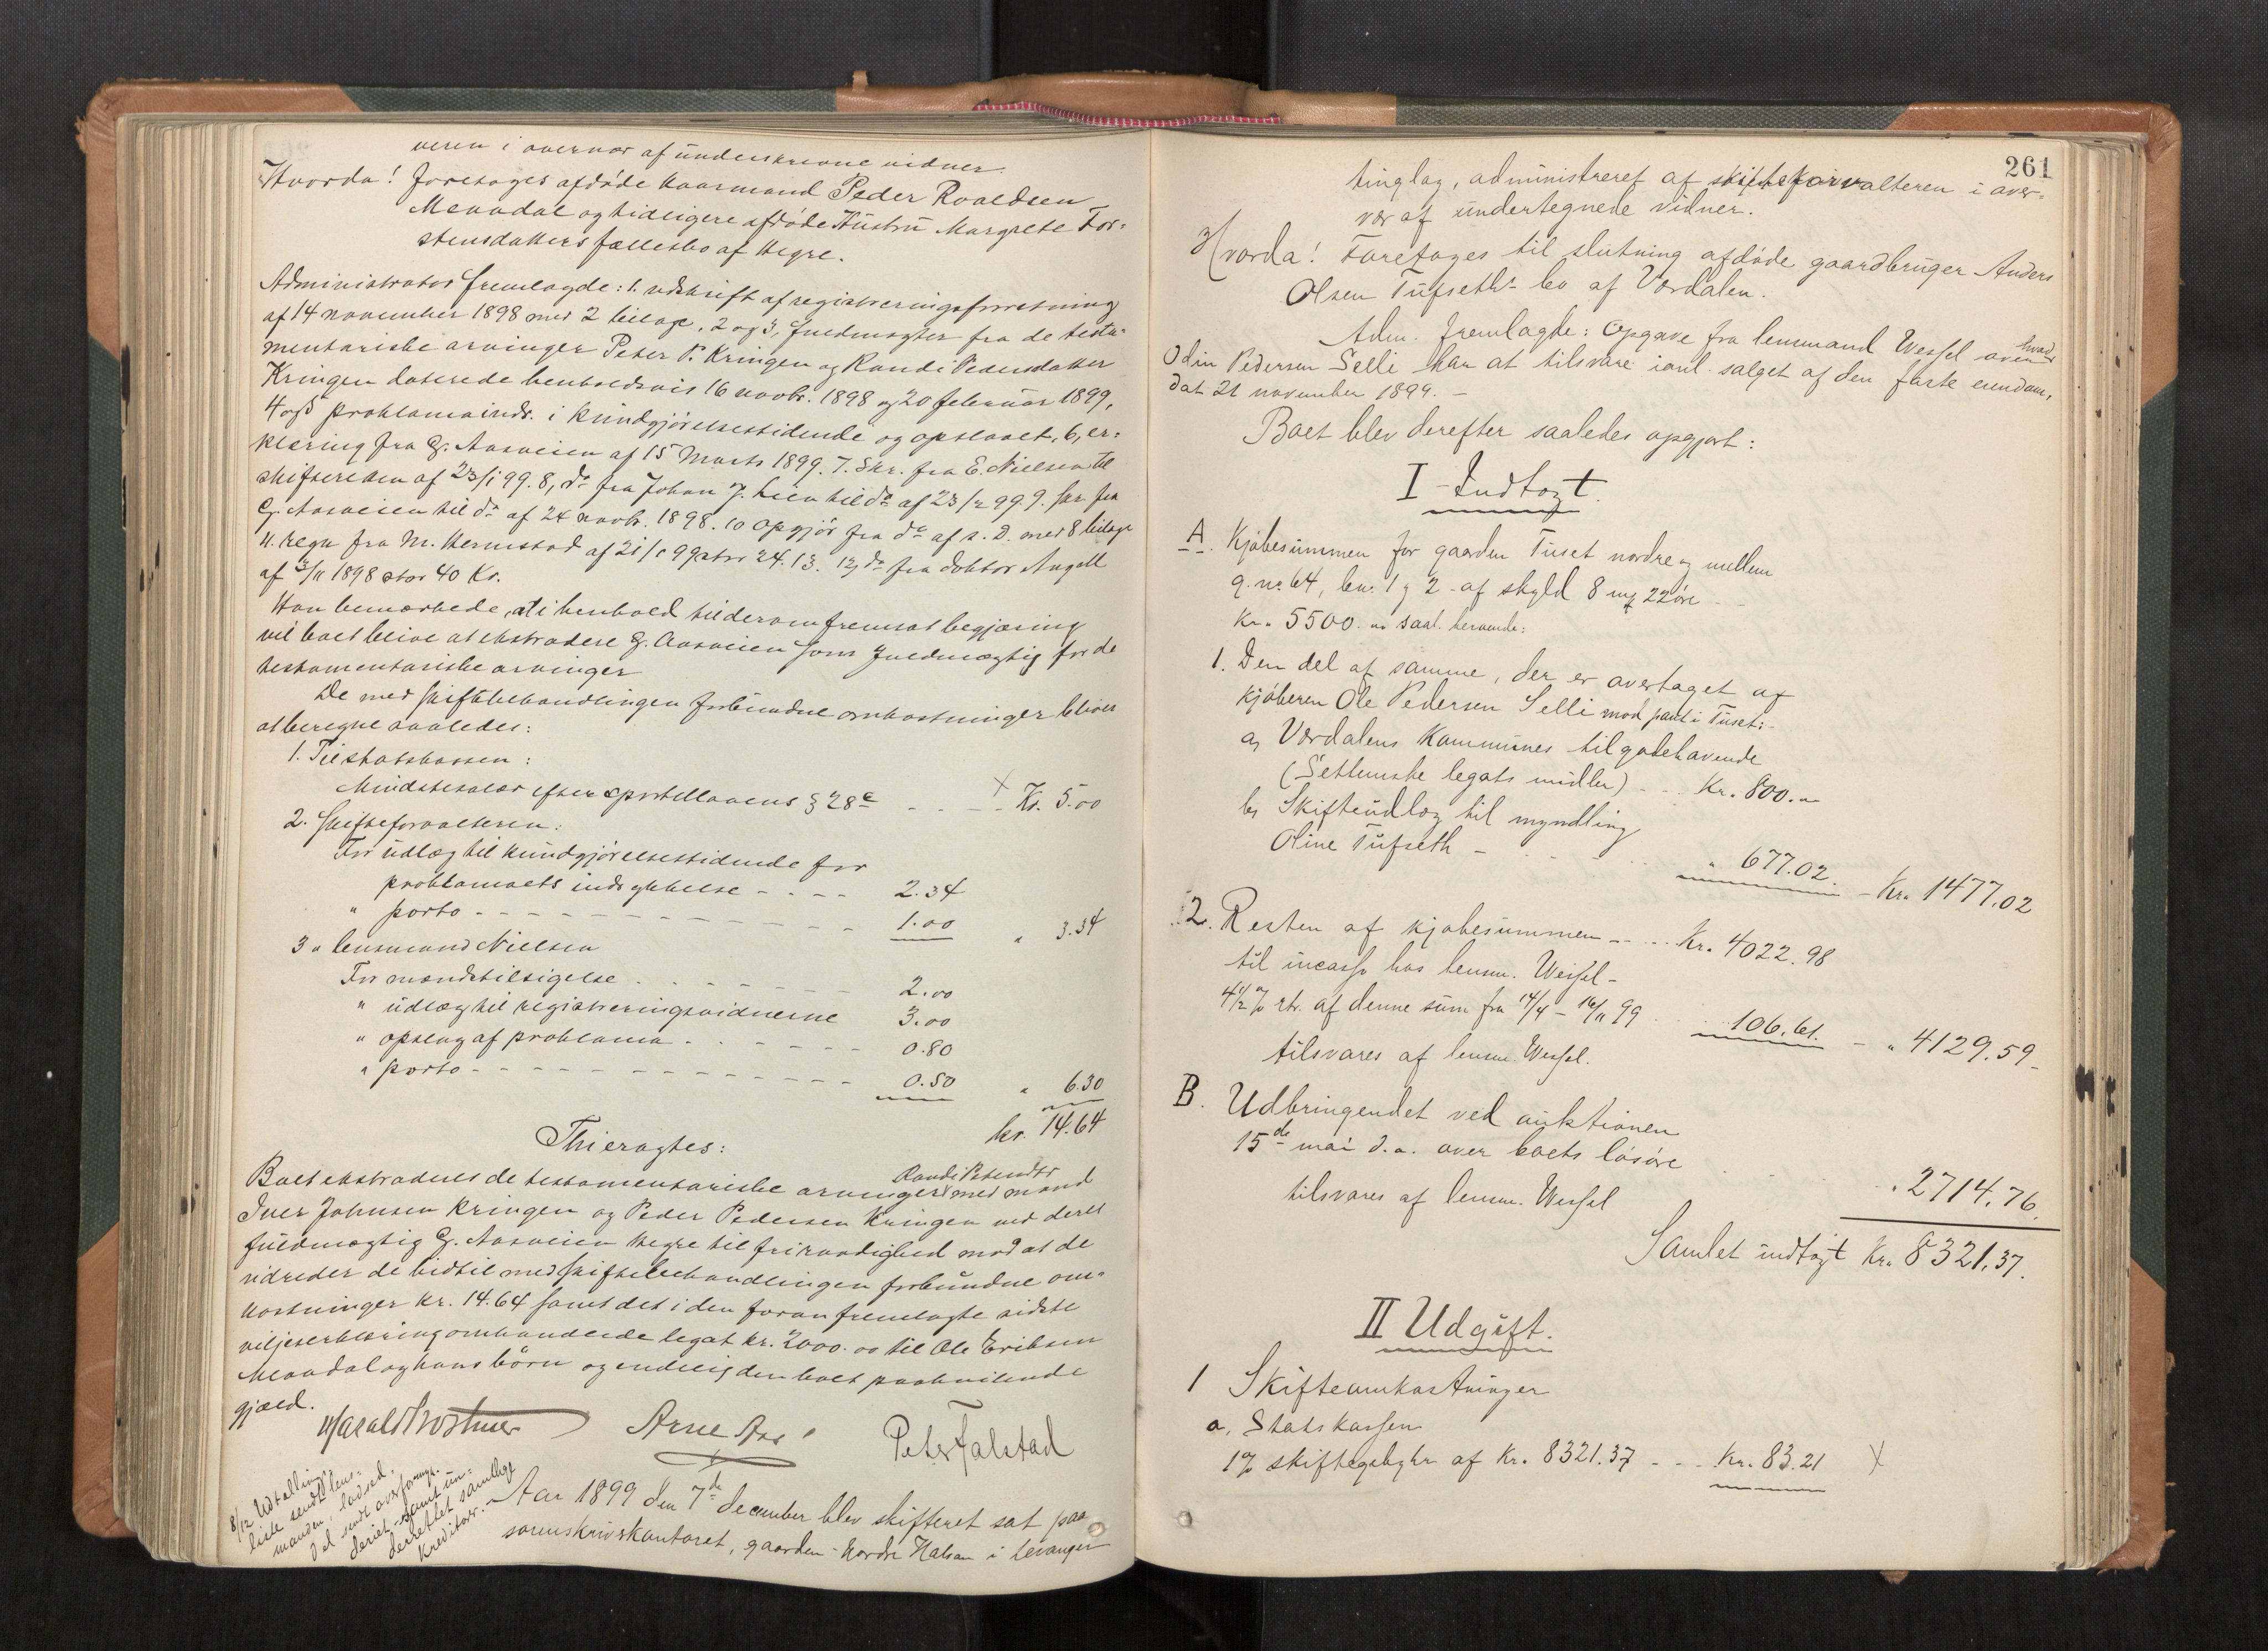 veren i overvær af underskrevne vidner.
Hvorda! Foretoges afdøde kaarmand Peder Roaldsen
Meaadal og tidligere afdøde Hustru Margrete Tor-
stensdatters fællesbo af Hegre.
Administrator fremlagde: 1. udskrift af registreringsforretning
af 14 november 1898 med 2 bilage, 2 og 3, fuldmagter fra de testa-
mentariske arvinger Peter P. Kringen og Randi Pedersdatter
Kringen daterede henholdsvis 16 novbr. 1898 og 20 februar 1899,
4 og 5 proklamaindr. i kundgjørelsestidende og opslaaet, 6, er-
klæring fra G. Aasveien af 15 Marts 1899. 7. Skr. fra E. Nielsen til
skifteretten af 23/1 99. 8, do fra Johan J. Lien til do af 23/2 99 9. skr fra
G. Aasveien til do af 24 novbr. 1898. 10 Opgjør fra do af s. D. med 8 bilage
11. regn fra M. Hermstad af 21/1 99 stor 24.13. 12, do fra doktor Angell
af 3/11 1898 stor 40 Kr.
Han bemærkede, at i henhold til derom fremsat begjæring
vil boet blive at ekstradere G. Aasveien som fuldmægtig for de
testamentariske arvinger
De med skiftebehandlingen forbundne omkostninger bliver
at beregne saaledes:
1. Til statskassen:
Mindstesalær efter sportellovens § 28 c - - - Kr. 5.00
2. Skifteforvalteren:
For udlæg til kundgjørelsestidende for
proklamaets indrykkelse - - - - 2.34
" porto - - - - - - - - - - - 1.00 " 3.34
3 " lensmand Nielsen
For mandstilsigelse - - - - - - 2.00
" udlæg til registreringsvidnerne 3.00
" opslag af proklama - - - - - 0.80
" porto - - - - - - - - - - - 0.50 " 6.30
kr. 14.64
Thi eragtes:
Randi Pedersdtr
Boet ekstraderes de testamentariske arvinger med mand
Iver Johnsen Kringen og Peder Pedersen Kringen ved deres
fuldmægtig G. Aasveien Hegre til friraadighed mod at de
udreder de hidtil med skiftebehandlingen forbundne om-
kostninger kr. 14.64 samt det i den foran fremlagte sidste
viljeserklæring omhandlede legat kr. 2000.00 til Ole Eriksen
Meaadal og hans børn og endelig den boet paahvilende
gjæld.
Harald Arne Aas Peter Falstad
8/12 Udtellings-
liste sendt lens-
manden, ladsed.
Del sendt overformyn-
deriet samt un-
derrettet samtlige
kreditorer.
Aar 1899 den 7de december blev skifteret sat paa
sorenskriverkontoret, gaarden Nordre Halsan i Levanger
261
tinglag, administreret af skifteforvalteren i over-
vær af undertegnede vidner.
Hvorda! Foretoges til slutning afdøde gaardbruger Anders
Olsen Tufseths bo af Værdalen.
Adm. fremlagde: Opgave fra lensmand Wessel over hvad
Odin Pedersen Selli har at tilsvare ianl. salget af den faste eiendom,
dat 21 november 1899. -
Boet blev derefter saaledes opgjort:
I Indtægt.
A. Kjøbesummen for gaarden Tuset nordre og mellem
g.no 64, bn. 1 g 2 - af skyld 8 mk 22 øre - -
Kr. 5500. " saal. beroende:
1. Den del af samme, der er overtaget af
kjøberen Ole Pedersen Selli mod pant i Tuset: -
a, Værdalens Kommunes tilgodehavende
(Setlemske legats midler) - - Kr. 800. "
b, Skifteudlæg til myndling
Oline Tufseth - - - - " 677.02. - Kr. 1477.02
2. Resten af kjøbesummen - - - Kr. 4022.98
til incasso hos lensm. Wessel -
4 1/2 % rtr. af denne sum fra 14/4 - 16/11 99 - - 106.61. - " 4129.59 -
tilsvares af lensm. Wessel.
B. Udbringendet ved auktionen
15de mai d.a. over boets løsøre
tilsvares af lensm. Wessel - " 2714.76.
Samlet indtægt Kr. 8321.37.
II Udgift.
1 Skifteomkostninger
a, Statskassen
1% skiftegebyhr af Kr. 8321.37 - - - Kr. 83.21 X